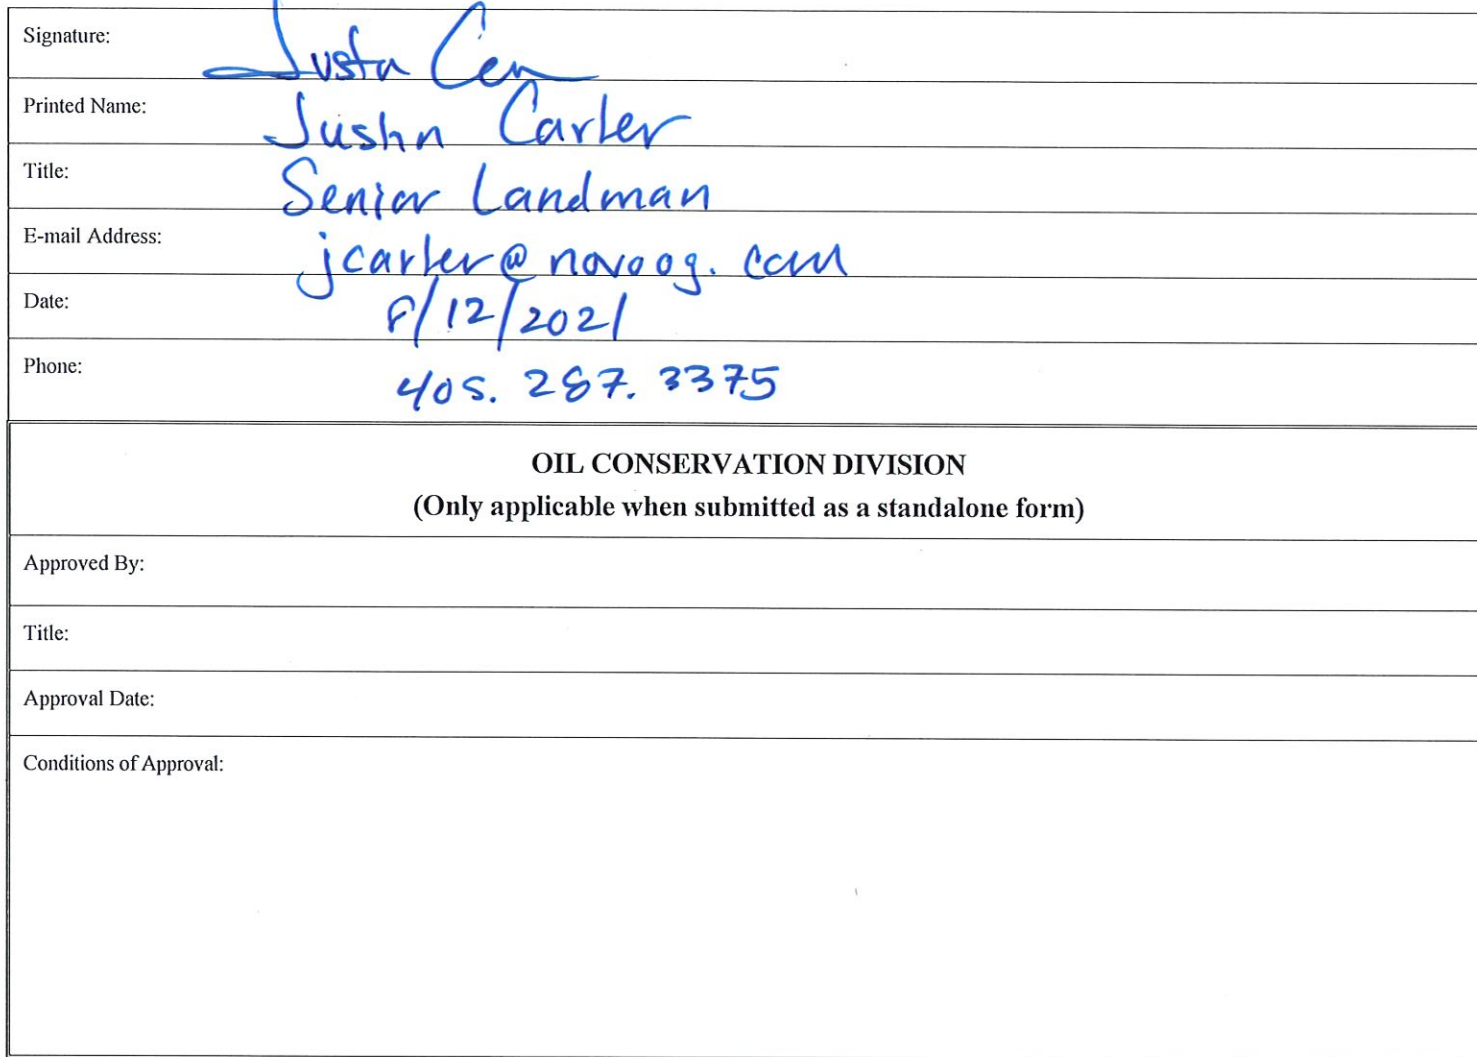 Signature: Justin Carter
Printed Name: Justin Carter
Title: Senior Landman
E-mail Address: jcarter@novoog.com
Date: 8/12/2021
Phone: 405.287.3375
OIL CONSERVATION DIVISION
(Only applicable when submitted as a standalone form)
Approved By:
Title:
Approval Date:
Conditions of Approval: